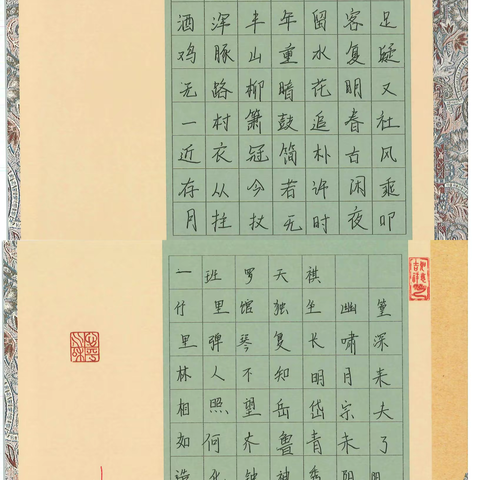 酒浑半年留客足
鸡豚山重水复疑
无路柳暗花明又
一村箫鼓追春社
近衣冠简朴古风
存从今若许闲乘
月拄杖无时夜叩
一班罗天祺
竹里馆独坐幽篁
里弹琴复长啸深
林人不知明月来
相照望岳岱宗夫
如何齐鲁青未了
造化钟神秀阴阳